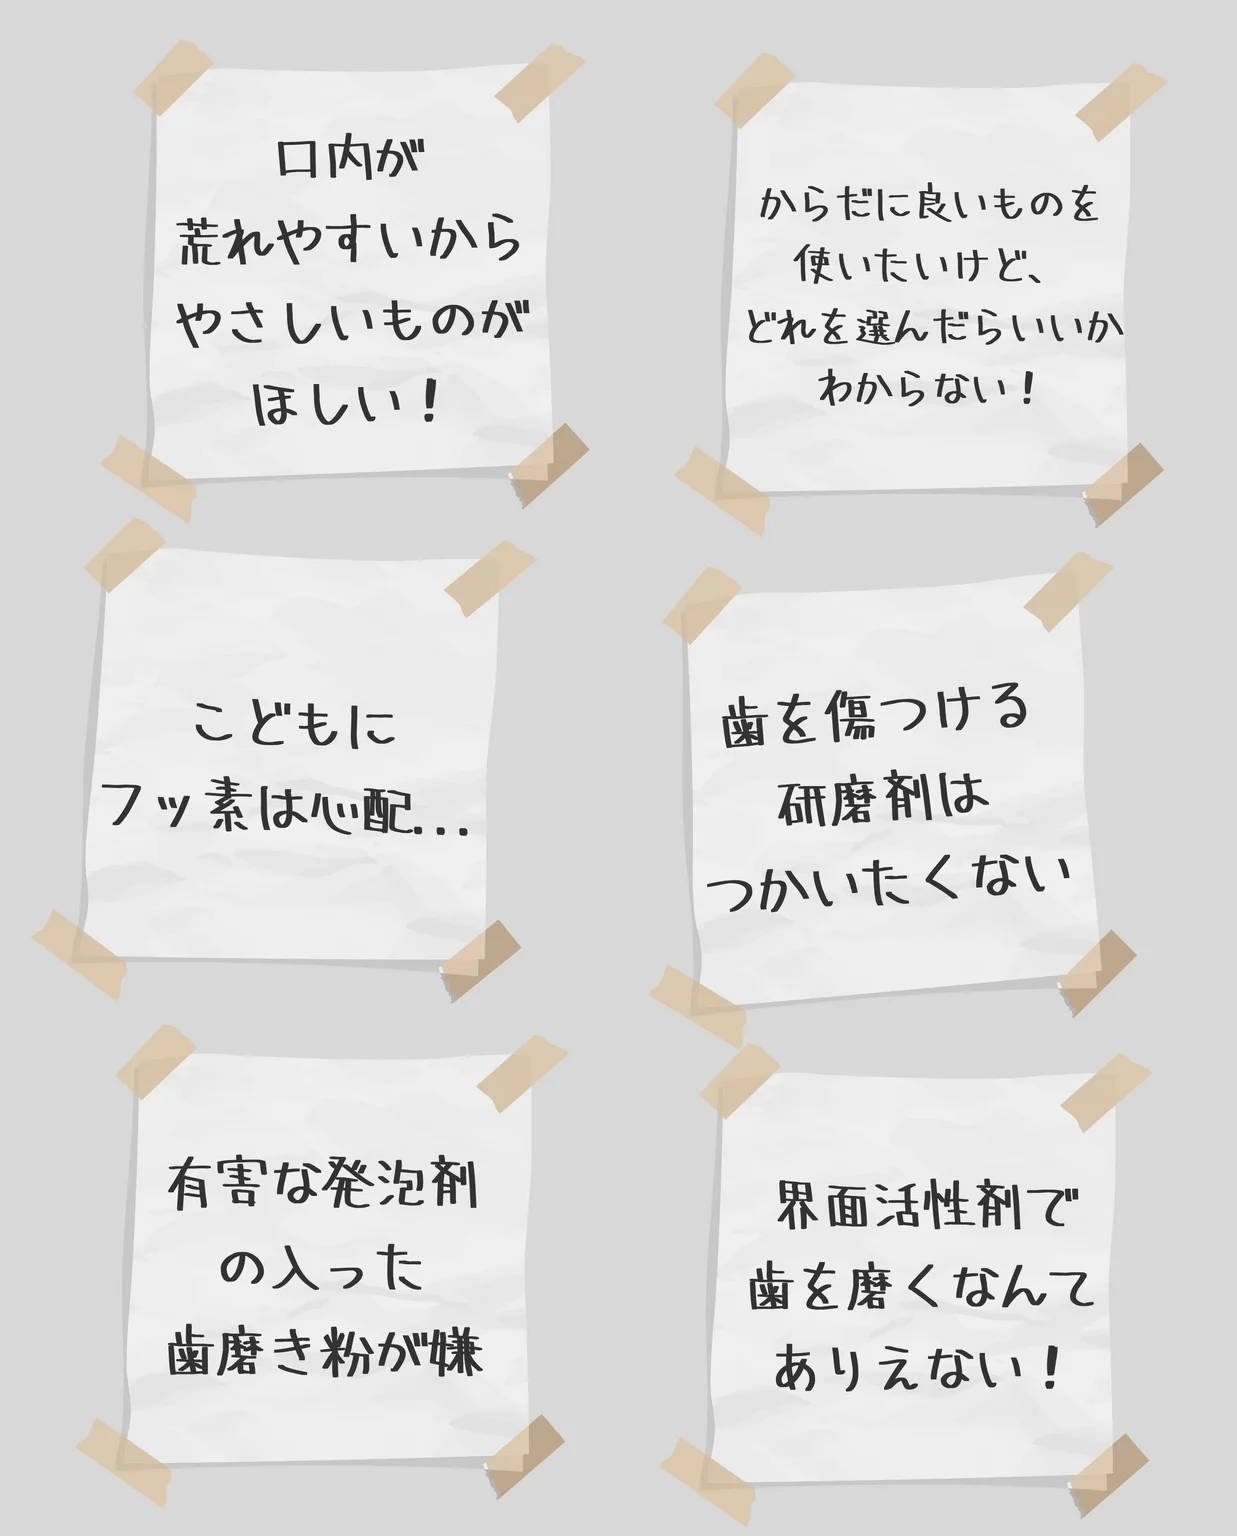 口内が
荒れやすいから
やさしいものが
ほしい！
からだに良いものを
使いたいけど、
どれを選んだらいいか
わからない！
こどもに
フッ素は心配...
歯を傷つける
研磨剤は
つかいたくない
有害な発泡剤
の入った
歯磨き粉が嫌
界面活性剤で
歯を磨くなんて
ありえない！